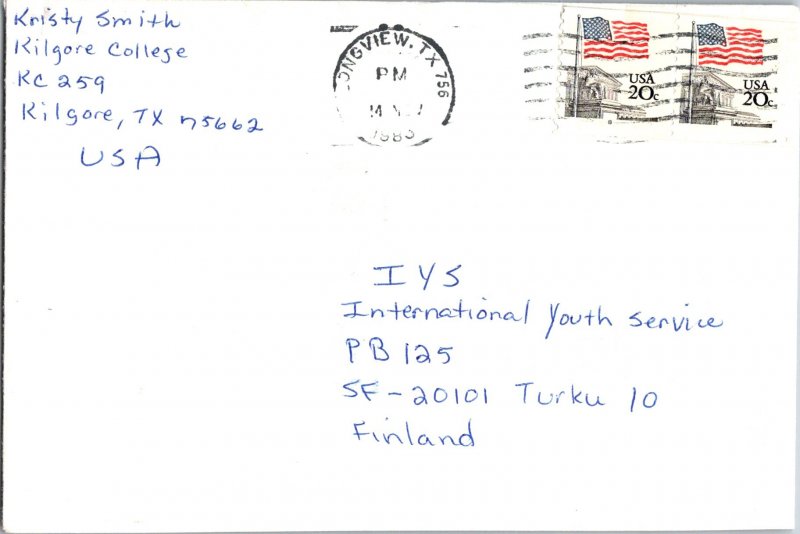 Kristy Smith
Kilgore College
KC 259
Kilgore, TX 75662
USA
LONGVIEW, TX 756
PM
14
USA
20c
USA
20c
IYS
International Youth Service
PB 125
SF-20101 Turku 10
Finland